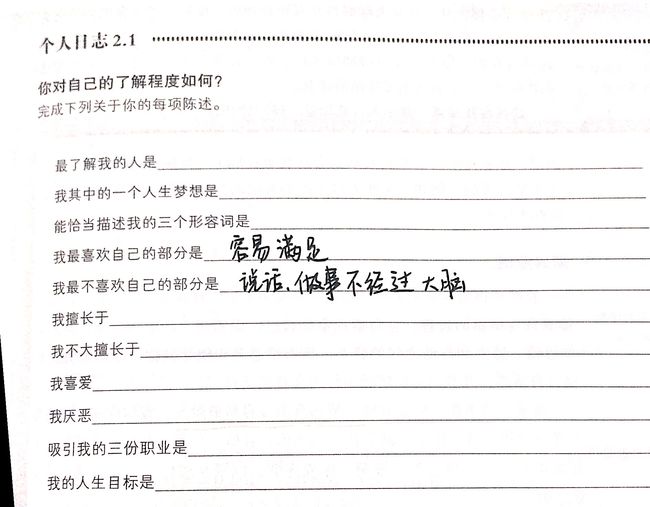 个人日志 2.1
你对自己的了解程度如何？
完成下列关于你的每项陈述。
最了解我的人是
我其中的一个人生梦想是
能恰当描述我的三个形容词是
我最喜欢自己的部分是 容易满足
我最不喜欢自己的部分是 说话、做事不经过大脑
我擅长于
我不大擅长于
我喜爱
我厌恶
吸引我的三份职业是
我的人生目标是